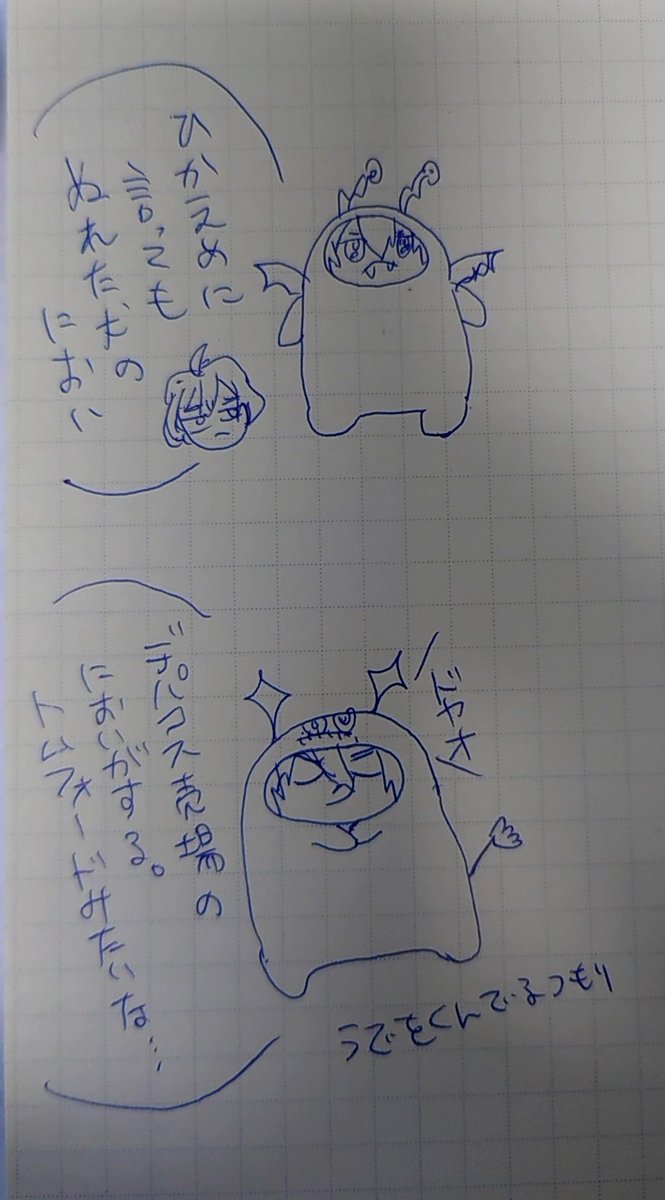 ひかえめに
言っても
ぬれた犬の
におい
デパコス売場の
においがする。
トムフォードみたいな…
うでをくんでるつもり